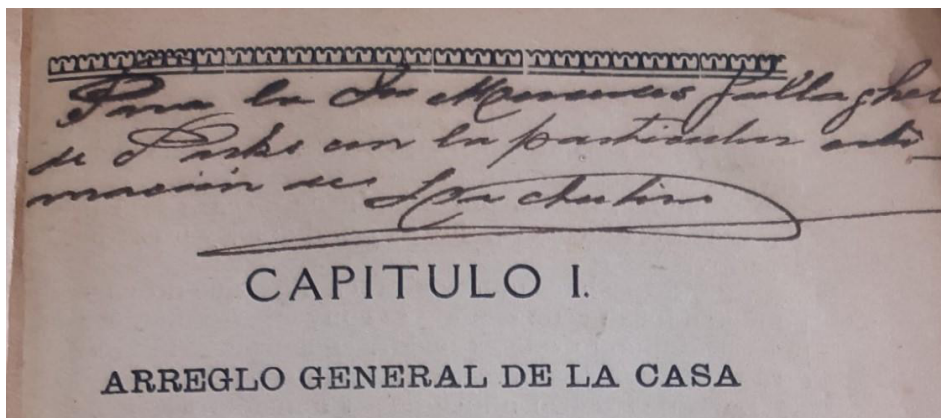 Para la Sra Mercedes Gallagher
de Parks con la particular esti-
mación de
CAPITULO I.
ARREGLO GENERAL DE LA CASA